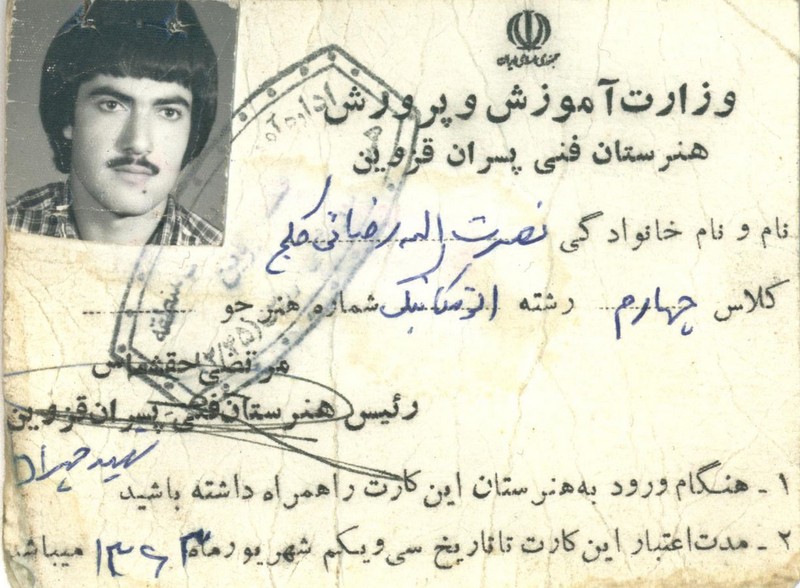 جمهوری اسلامی ایران
وزارت آموزش و پرورش
هنرستان فنی پسران قزوین
نام و نام خانوادگی نصرت اله رضائی خلج
کلاس چهارم رشته اتومکانیک شماره هنرجو
مرتضی حقشناس
رئیس هنرستان فنی پسران قزوین
شهید
۱ ـ هنگام ورود به هنرستان این کارت را همراه داشته باشید
۲ ـ مدت اعتبار این کارت تا تاریخ سی و یکم شهریور ماه ۱۳۶۳ میباشد
اداره
منطقه